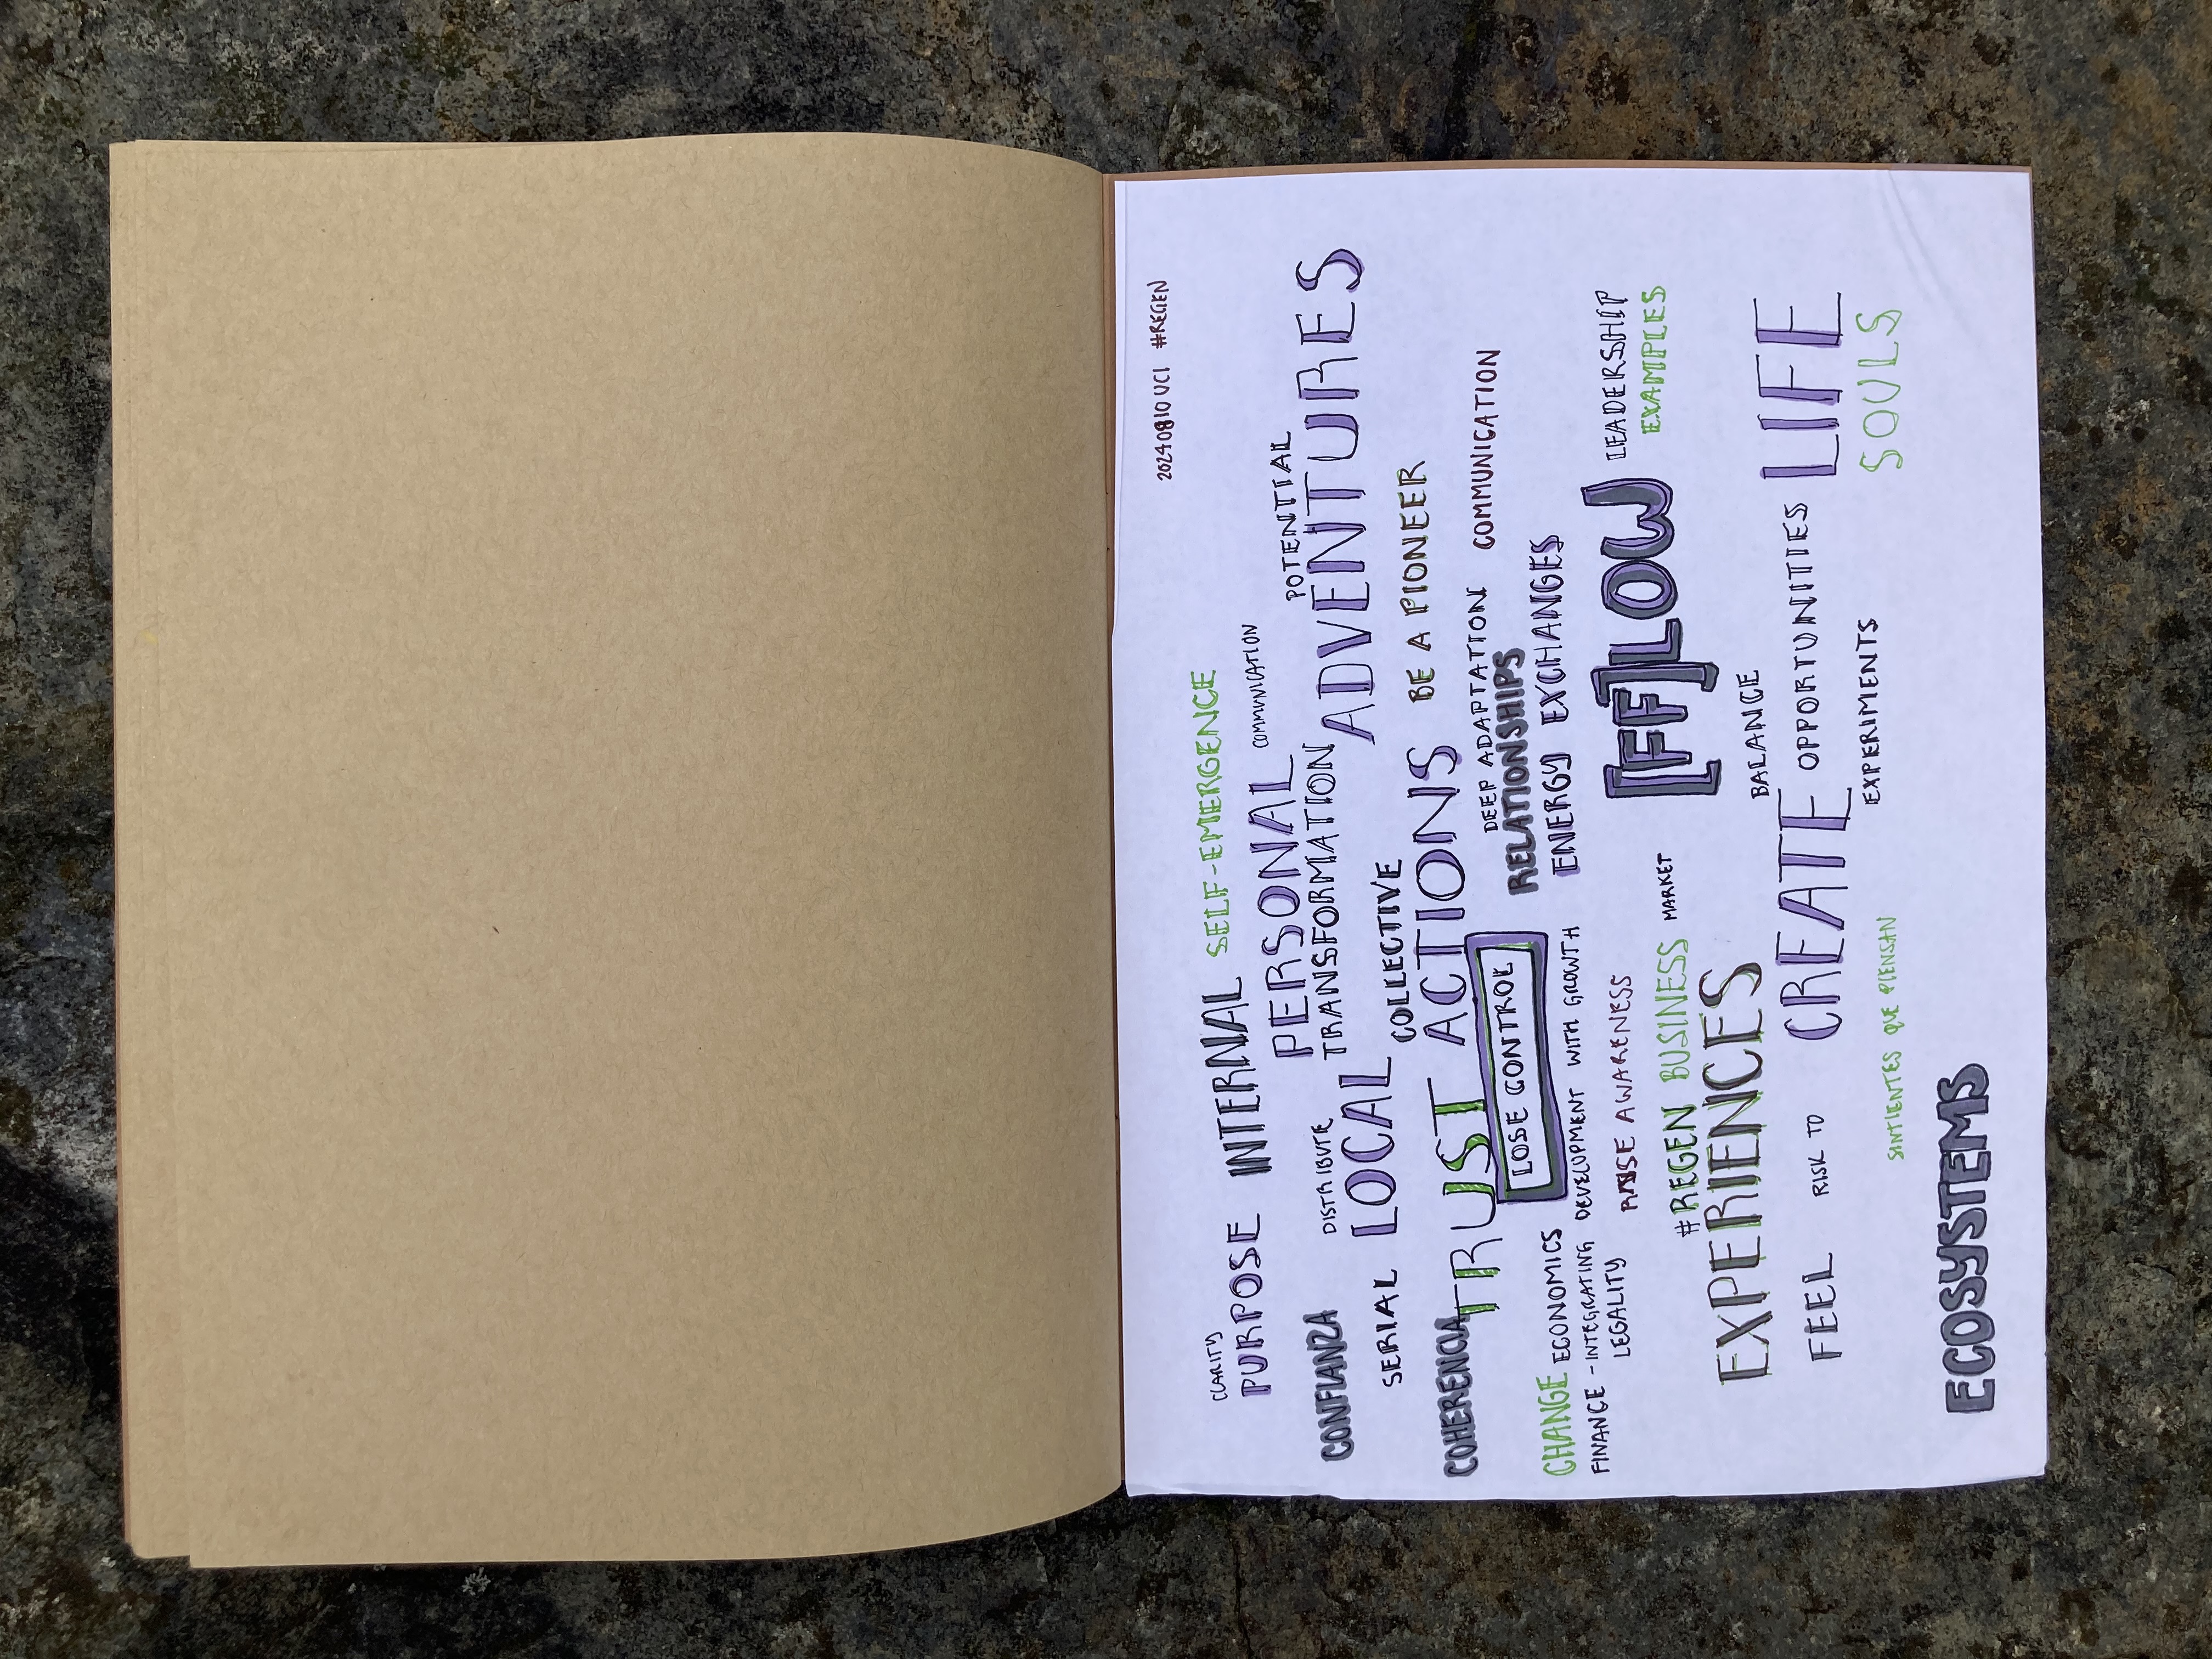 20240810 VCI #REGEN
CLARITY
PURPOSE INTERNAL SELF-EMERGENCE
COMMUNICATION
PERSONAL POTENTIAL
CONFIANZA DISTRIBUTE TRANSFORMATION ADVENTURES
SERIAL LOCAL COLLECTIVE
COHERENCIA TRUST ACTIONS BE A PIONEER
LOSE CONTROL
DEEP ADAPTATION COMMUNICATION
RELATIONSHIPS
CHANGE ECONOMICS
ENERGY EXCHANGES
FINANCE - INTEGRATING DEVELOPMENT WITH GROWTH
LEGALITY RAISE AWARENESS
[FF]LOW LEADERSHIP
EXAMPLES
#REGEN BUSINESS MARKET
EXPERIENCES
BALANCE
FEEL RISK TO CREATE OPPORTUNITIES LIFE
EXPERIMENTS SOULS
SINTIENTES QUE PIENSAN
ECOSYSTEMS